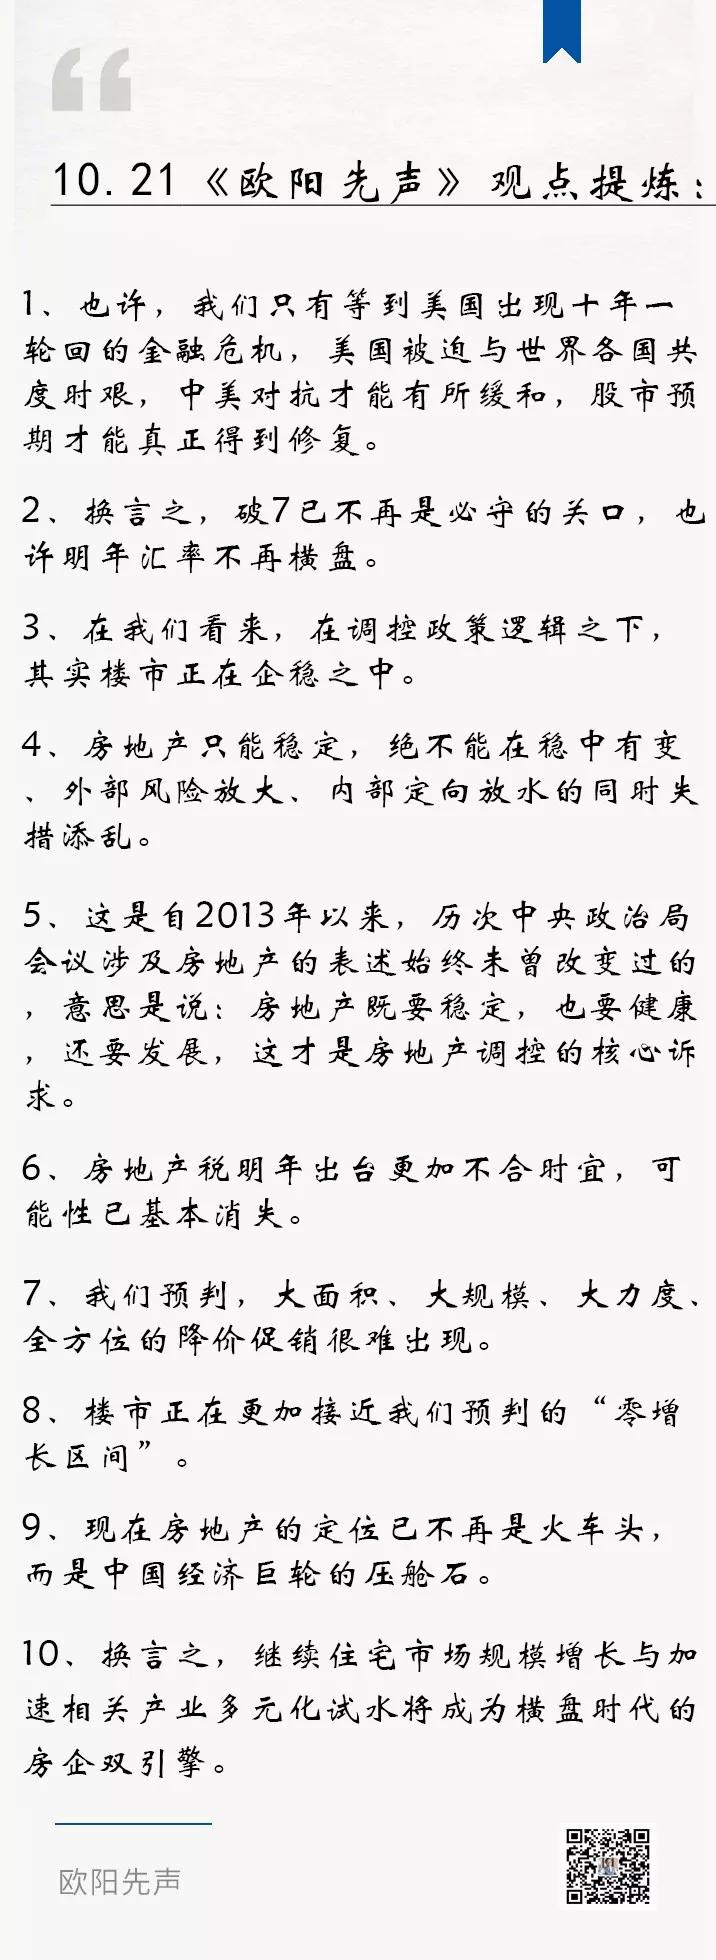 10.21《欧阳先声》观点提炼：
1、也许，我们只有等到美国出现十年一
轮回的金融危机，美国被迫与世界各国共
度时艰，中美对抗才能有所缓和，股市预
期才能真正得到修复。
2、换言之，破7已不再是必守的关口，也
许明年汇率不再横盘。
3、在我们看来，在调控政策逻辑之下，
其实楼市正在企稳之中。
4、房地产只能稳定，绝不能在稳中有变
、外部风险放大、内部定向放水的同时失
措添乱。
5、这是自2013年以来，历次中央政治局
会议涉及房地产的表述始终未曾改变过的
，意思是说：房地产既要稳定，也要健康
，还要发展，这才是房地产调控的核心诉
求。
6、房地产税明年出台更加不合时宜，可
能性已基本消失。
7、我们预判，大面积、大规模、大力度、
全方位的降价促销很难出现。
8、楼市正在更加接近我们预判的“零增
长区间”。
9、现在房地产的定位已不再是火车头，
而是中国经济巨轮的压舱石。
10、换言之，继续住宅市场规模增长与加
速相关产业多元化试水将成为横盘时代的
房企双引擎。
欧阳先声